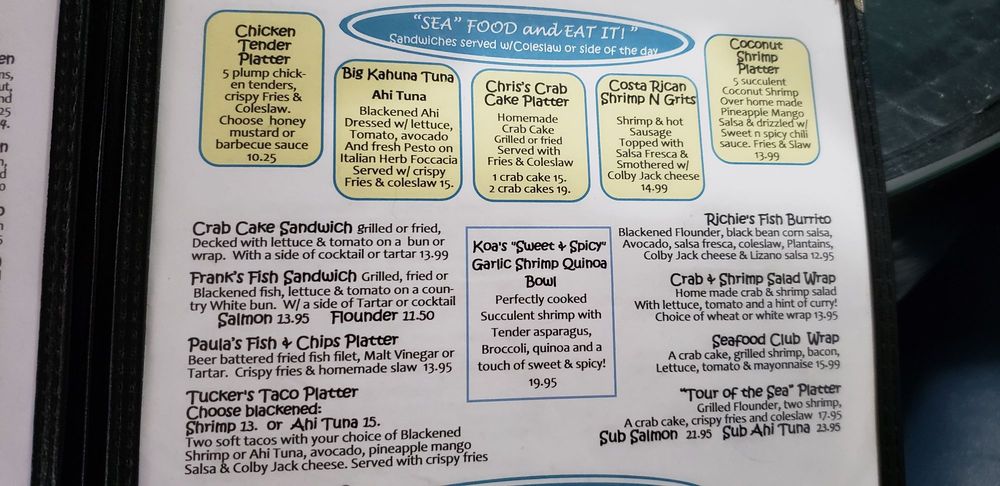 "SEA" FOOD and EAT IT! "
Sandwiches served w/Coleslaw or side of the day
Chicken
Tender
Platter
5 plump chick-
en tenders,
crispy Fries &
Coleslaw.
Choose honey
mustard or
barbecue sauce
10.25
Big Kahuna Tuna
Ahi Tuna
Blackened Ahi
Dressed w/ lettuce,
Tomato, avocado
And fresh Pesto on
Italian Herb Foccacia
Served w/ crispy
Fries & coleslaw 15.
Chris's Crab
Cake Platter
Homemade
Crab Cake
Grilled or fried
Served with
Fries & Coleslaw
1 crab cake 15.
2 crab cakes 19.
Costa Rican
Shrimp N Grits
Shrimp & hot
Sausage
Topped with
Salsa Fresca &
Smothered w/
Colby Jack cheese
14.99
Coconut
Shrimp
Platter
5 succulent
Coconut Shrimp
Over home made
Pineapple Mango
Salsa & drizzled w/
Sweet n spicy chili
sauce. Fries & Slaw
13.99
Crab Cake Sandwich grilled or fried,
Decked with lettuce & tomato on a bun or
wrap. With a side of cocktail or tartar 13.99
Frank's Fish Sandwich Grilled, fried or
Blackened fish, lettuce & tomato on a coun-
try White bun. W/ a side of Tartar or cocktail
Salmon 13.95 Flounder 11.50
Paula's Fish & Chips Platter
Beer battered fried fish filet, Malt Vinegar or
Tartar. Crispy fries & homemade slaw 13.95
Tucker's Taco Platter
Choose blackened:
Shrimp 13. or Ahi Tuna 15.
Two soft tacos with your choice of Blackened
Shrimp or Ahi Tuna, avocado, pineapple mango
Salsa & Colby Jack cheese. Served with crispy fries
Koa's "Sweet & Spicy"
Garlic Shrimp Quinoa
Bowl
Perfectly cooked
Succulent shrimp with
Tender asparagus,
Broccoli, quinoa and a
touch of sweet & spicy!
19.95
Richie's Fish Burrito
Blackened Flounder, black bean corn salsa,
Avocado, salsa fresca, coleslaw, Plantains,
Colby Jack cheese & Lizano salsa 12.95
Crab & Shrimp Salad Wrap
Home made crab & shrimp salad
With lettuce, tomato and a hint of curry!
Choice of wheat or white wrap 13.95
Seafood Club Wrap
A crab cake, grilled shrimp, bacon,
Lettuce, tomato & mayonnaise 15.99
"Tour of the Sea" Platter
Grilled Flounder, two shrimp,
A crab cake, crispy fries and coleslaw 17.95
Sub Salmon 21.95 Sub Ahi Tuna 23.95